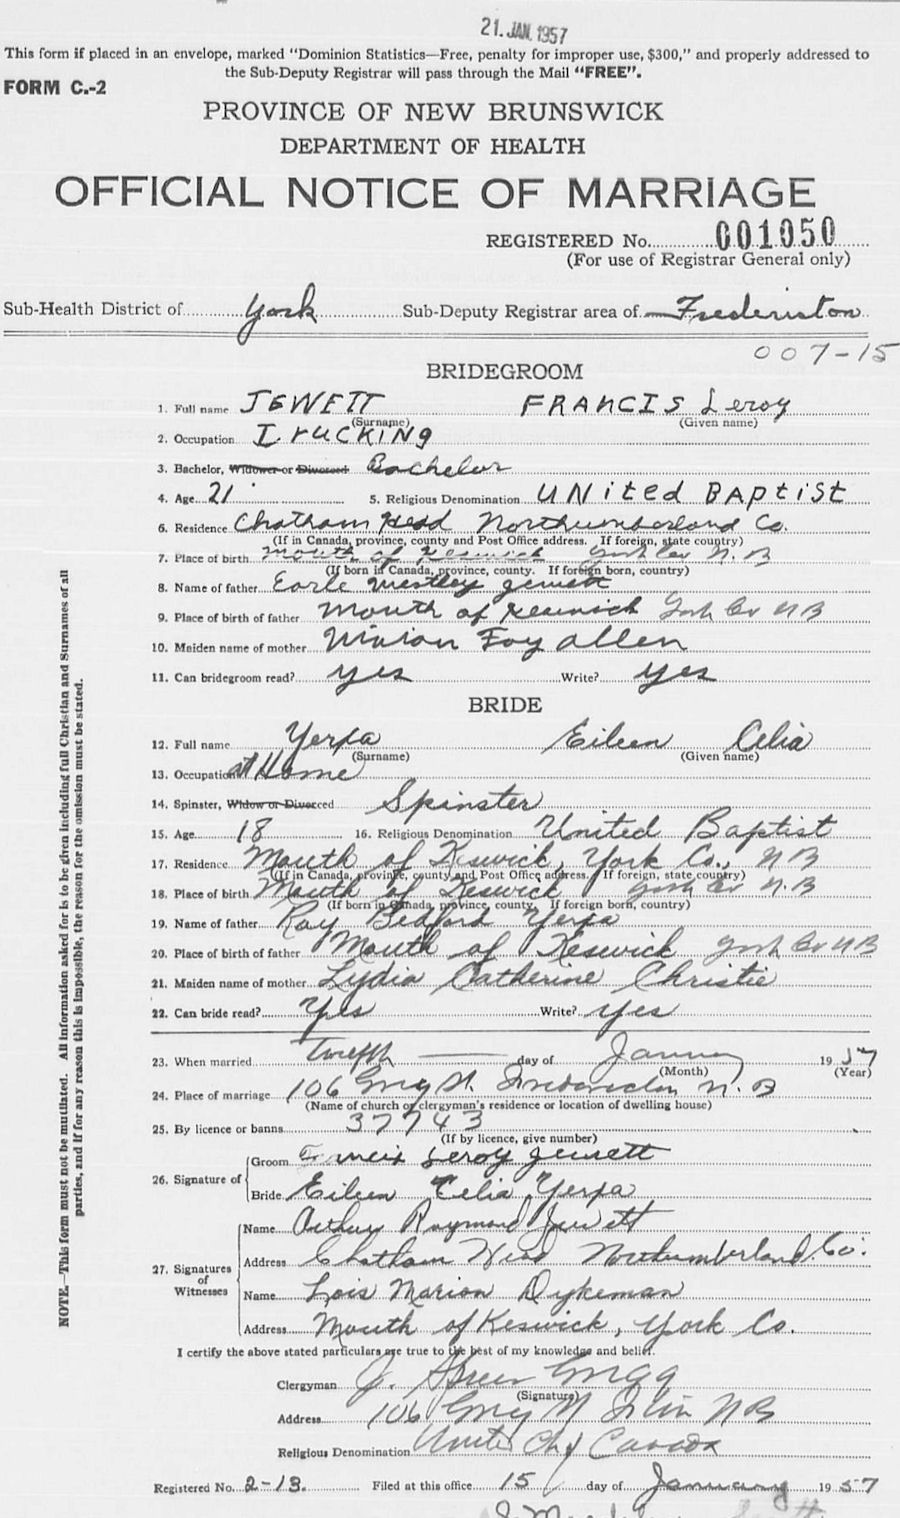 21. JAN. 1957
This form if placed in an envelope, marked "Dominion Statistics—Free, penalty for improper use, $300," and properly addressed to
the Sub-Deputy Registrar will pass through the Mail "FREE".
FORM C.-2
PROVINCE OF NEW BRUNSWICK
DEPARTMENT OF HEALTH
OFFICIAL NOTICE OF MARRIAGE
REGISTERED No. 001050
(For use of Registrar General only)
Sub-Health District of York Sub-Deputy Registrar area of Fredericton
007-15
BRIDEGROOM
1. Full name JEWETT FRANCIS Leroy
(Surname) (Given name)
2. Occupation TruCKING
3. Bachelor, Widower or Divorced Bachelor
4. Age 21 5. Religious Denomination UNited BAptiSt
6. Residence Chatham Head Northumberland Co.
(If in Canada, province, county and Post Office address. If foreign, state country)
7. Place of birth mouth of Keswick York Co N.B
(If born in Canada, province, county. If foreign born, country)
8. Name of father Earle Westley Jewett
9. Place of birth of father mouth of Keswick York Co NB
10. Maiden name of mother Vivian Foy Allen
11. Can bridegroom read? yes Write? yes
BRIDE
12. Full name Yerxa Eileen Celia
(Surname) (Given name)
13. Occupation at Home
14. Spinster, Widow or Divorced Spinster
15. Age 18 16. Religious Denomination United Baptist
17. Residence Mouth of Keswick, York Co., NB
(If in Canada, province, county and Post Office address. If foreign, state country)
18. Place of birth Mouth of Keswick York Co N.B
(If born in Canada, province, county. If foreign born, country)
19. Name of father Roy Bedford Yerxa
20. Place of birth of father Mouth of Keswick York Co NB
21. Maiden name of mother Lydia Catherine Christie
22. Can bride read? Yes Write? yes
23. When married Twelfth day of January 1957
(Month) (Year)
24. Place of marriage 106 Grey St. Fredericton N.B
(Name of church or clergyman's residence or location of dwelling house)
25. By licence or banns 37743
(If by licence, give number)
26. Signature of
Groom Francis Leroy Jewett
Bride Eileen Celia Yerxa
27. Signatures of Witnesses
Name Arthur Raymond Jewett
Address Chatham Head Northumberland Co.
Name Lois Marion Dykeman
Address Mouth of Keswick, York Co.
I certify the above stated particulars are true to the best of my knowledge and belief.
Clergyman J. Grigg
(Signature)
Address 106 Grey St NB
Religious Denomination United Ch of Canada
Registered No. 2-13. Filed at this office 15 day of January 1957
NOTE.—This form must not be mutilated. All information asked for is to be given including full Christian and Surnames of all
parties, and if for any reason this is impossible, the reason for the omission must be stated.